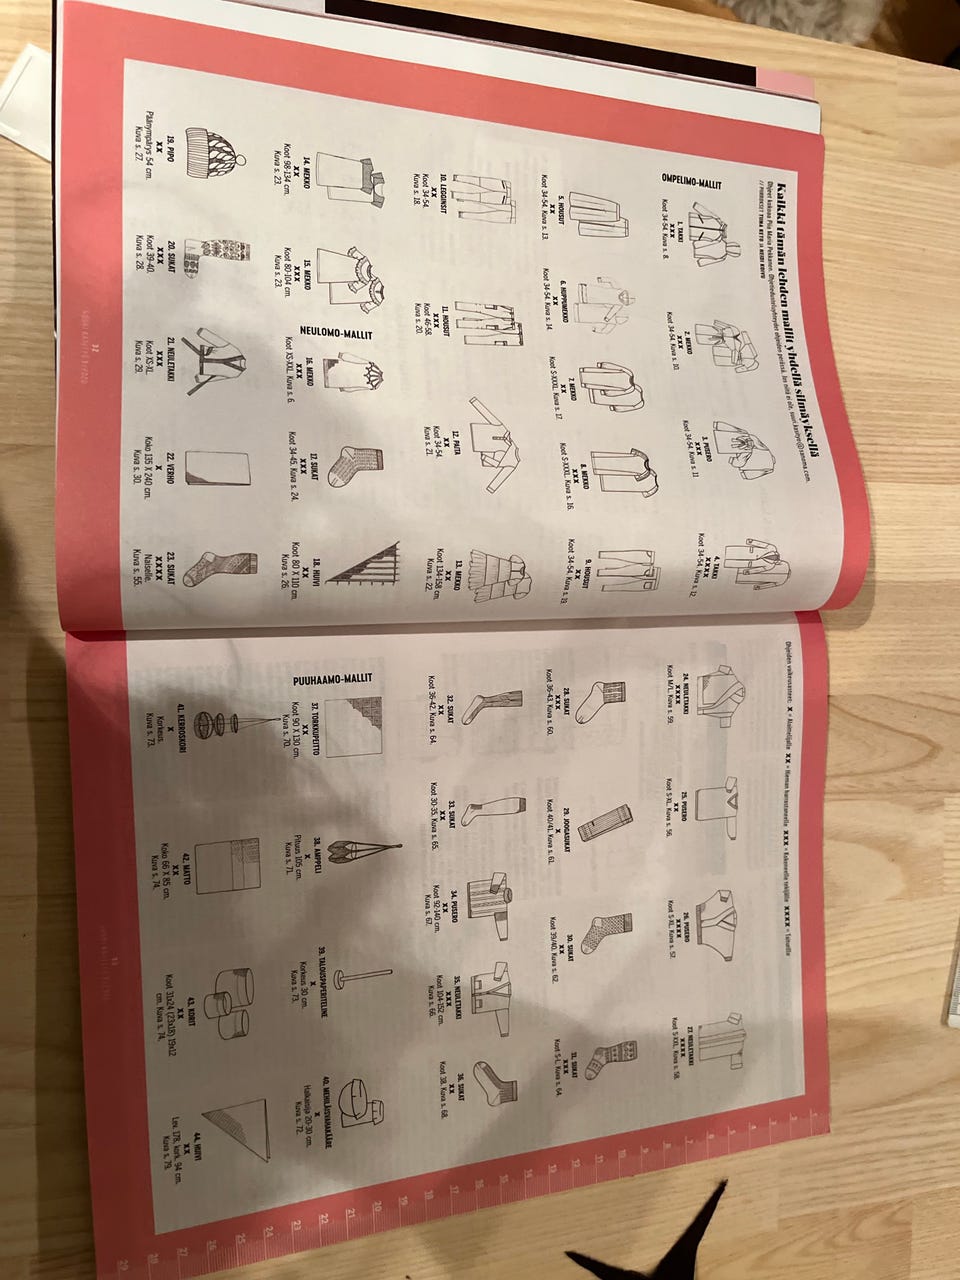 Kaikki tämän lehden mallit yhdellä silmäyksellä
OMPELIMO-MALLIT
1. TAKKI
XXX
Koot 34-54. Kuva s. 8.
2. MEKKO
XXX
Koot 34-54. Kuva s. 10.
3. PUSERO
XXX
Koot 34-54. Kuva s. 11
4. TAKKI
XXXX
Koot 34-54. Kuva s. 12
5. HOUSUT
XX
Koot 34-54. Kuva s. 13.
6. HUPPUMEKKO
XX
Koot 34-54. Kuva s. 14.
7. MEKKO
XX
Koot S-XXXL. Kuva s. 17.
8. MEKKO
XX
Koot S-XXXL. Kuva s. 16.
9. HOUSUT
XX
Koot 34-54. Kuva s. 19.
10. LEGGINSIT
XX
Koot 34-54.
Kuva s. 18.
11. HOUSUT
XXX
Koot 46-58.
Kuva s. 20.
12. PAITA
XX
Koot 34-54.
Kuva s. 21.
13. MEKKO
XX
Koot 134-158 cm.
Kuva s. 22.
14. MEKKO
XX
Koot 98-134 cm.
Kuva s. 23.
15. MEKKO
XXX
Koot 80-104 cm.
Kuva s. 23.
NEULOMO-MALLIT
16. MEKKO
XXX
Koot XS-XXL. Kuva s. 6.
17. SUKAT
XXX
Koot 34-45. Kuva s. 24.
18. HUIVI
XX
Koot 80 X 110 cm.
Kuva s. 26.
19. PIPO
XX
Päänympärys 54 cm.
Kuva s. 27.
20. SUKAT
XXX
Koot 39-40.
Kuva s. 28.
21. NEULETAKKI
XXX
Koot XS-XL.
Kuva s. 29.
22. VERHO
X
Koko 136 X 240 cm.
Kuva s. 30.
23. SUKAT
XXXX
Naiselle.
Kuva s. 55.
Ohjeiden vaikeusasteet: X = Aloittelijalle XX = Hieman harrastaneelle XXX = Kokeneelle tekijälle XXXX = Taiturille
24. NEULETAKKI
XXXX
Koot M/L. Kuva s. 59.
25. PUSERO
XX
Koot S-XL. Kuva s. 56.
26. PUSERO
XXXX
Koot S-XL. Kuva s. 57.
27. NEULETAKKI
XXXX
Koot S-XXL. Kuva s. 58.
28. SUKAT
XXX
Koot 36-43. Kuva s. 60.
29. JOOGASUKAT
X
Koot 40/41. Kuva s. 61.
30. SUKAT
XX
Koot 39/40. Kuva s. 62.
31. SUKAT
XXX
Koot S-L. Kuva s. 64.
32. SUKAT
XX
Koot 36-42. Kuva s. 64.
33. SUKAT
XX
Koot 30-35. Kuva s. 65.
34. PUSERO
XX
Koot 92-140 cm.
Kuva s. 67.
35. NEULETAKKI
XXX
Koot 104-152 cm.
Kuva s. 66.
36. SUKAT
XX
Koot 38. Kuva s. 68.
PUUHAAMO-MALLIT
37. TORKKUPEITTO
XX
Koot 90 X 130 cm.
Kuva s. 70.
38. AMPPELI
X
Pituus 105 cm.
Kuva s. 71.
39. TALOUSPAPERITELINE
X
Korkeus 30 cm.
Kuva s. 73.
40. MEHILÄISVAHAKÄÄRE
X
Halkaisija 20-30 cm.
Kuva s. 72.
41. KERROSKORI
X
Korkeus.
Kuva s. 73.
42. MATTO
XX
Koko 66 X 85 cm.
Kuva s. 74.
43. KORIT
XX
Koot 31x24 (23x18) 19x12
cm. Kuva s. 74.
44. HUIVI
XX
Lev. 178, kork. 94 cm.
Kuva s. 79.
32